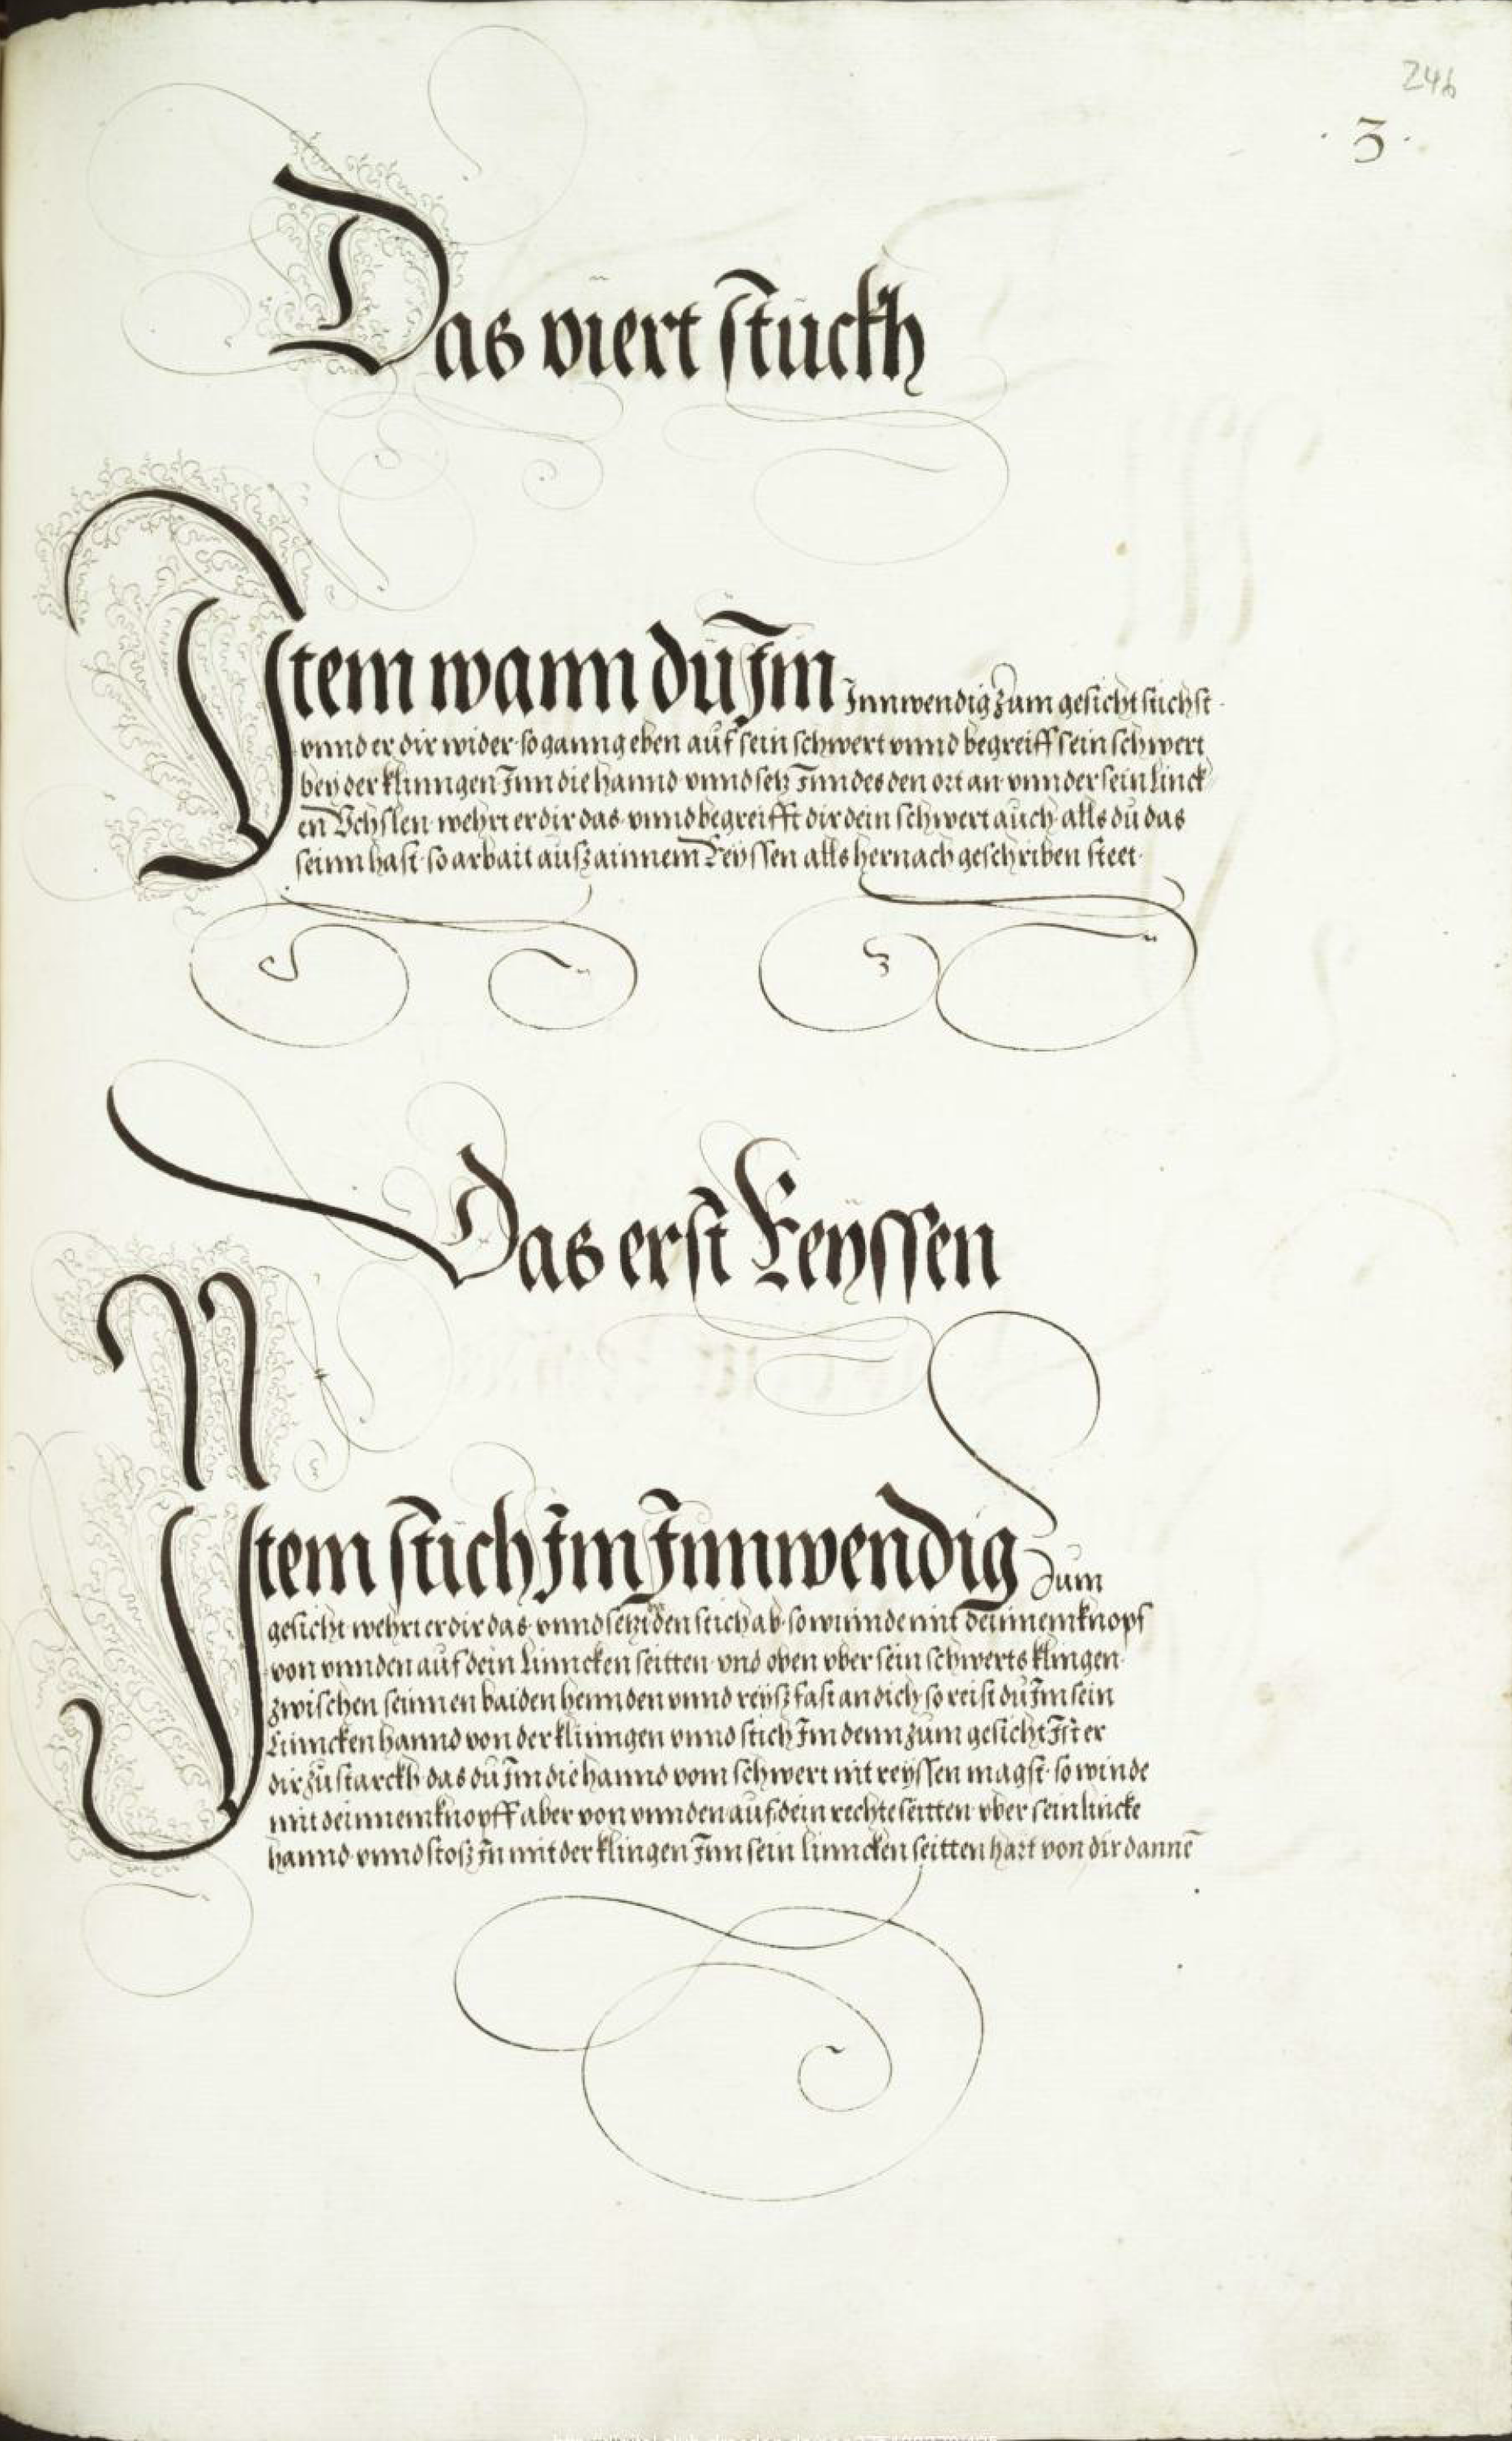 246
· 3 ·
Das viert stückh
Item wann dü Im Innwendig zum gesicht stichst
vnnd er dir wider so ganng eben auf sein schwert vnnd begreiff sein schwert
bey der klinngen Inn die hannd vnnd setz Inndes den ort an vnnder sein linck
en Vchslen wehrt er dir das vnnd begreifft dir dein schwert aüch alls dü das
seinn hast so arbait aüsz ainnem Reyssen alls hernach geschriben steet
Das erst Reyssen
Item stich Im Innwendig zum
gesicht wehrt er dir das vnnd setzt den stich ab so winnde mit deinnem knopf
von vnnden auf dein Linncken seitten vnd oben vber sein schwerts klingen
zwischen seinnen baiden hennden vnnd reysz fast an dich so reist dü Im sein
Linncken hannd von der klinngen vnnd stich Im denn zum gesicht Ist er
dir zü starckh das dü Im die hannd vom schwert nit reyssen magst so winde
mit deinnem knopff aber von vnnden auf dein rechte seitten vber sein lincke
hannd vnnd stosz In mit der klingen Inn sein linncken seitten hart von dir dannē